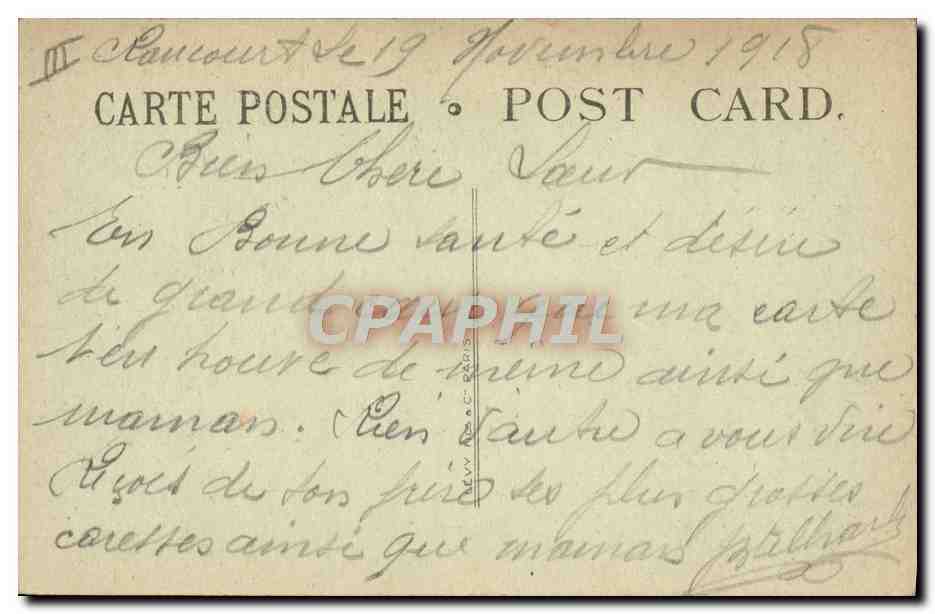 III Rancourt le 19 Novembre 1918
CARTE POSTALE • POST CARD.
Bien Chere Sœur
En Bonne santé et désire
de grand cœur que ma carte
t'en trouve de même ainsi que
maman. Rien d'autre a vous dire
Reçois de ton frère ses plus grosses
caresses ainsi que maman
LEVY FILS & Cie PARIS
CPAPHIL